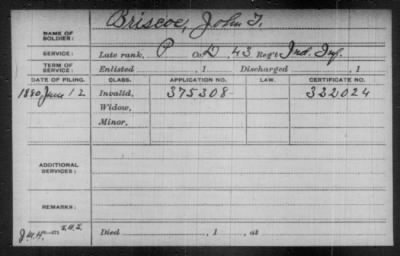 NAME OF SOLDIER: Briscoe, John T.
SERVICE: Late rank, P Co. D, 43 Reg't Ind. Inf.
TERM OF SERVICE: Enlisted , 1 Discharged , 1
DATE OF FILING. CLASS. APPLICATION NO. LAW. CERTIFICATE NO.
1880, June 12 Invalid, 375308 322024
Widow,
Minor,
ADDITIONAL SERVICES:
REMARKS:
Died , 1 , at